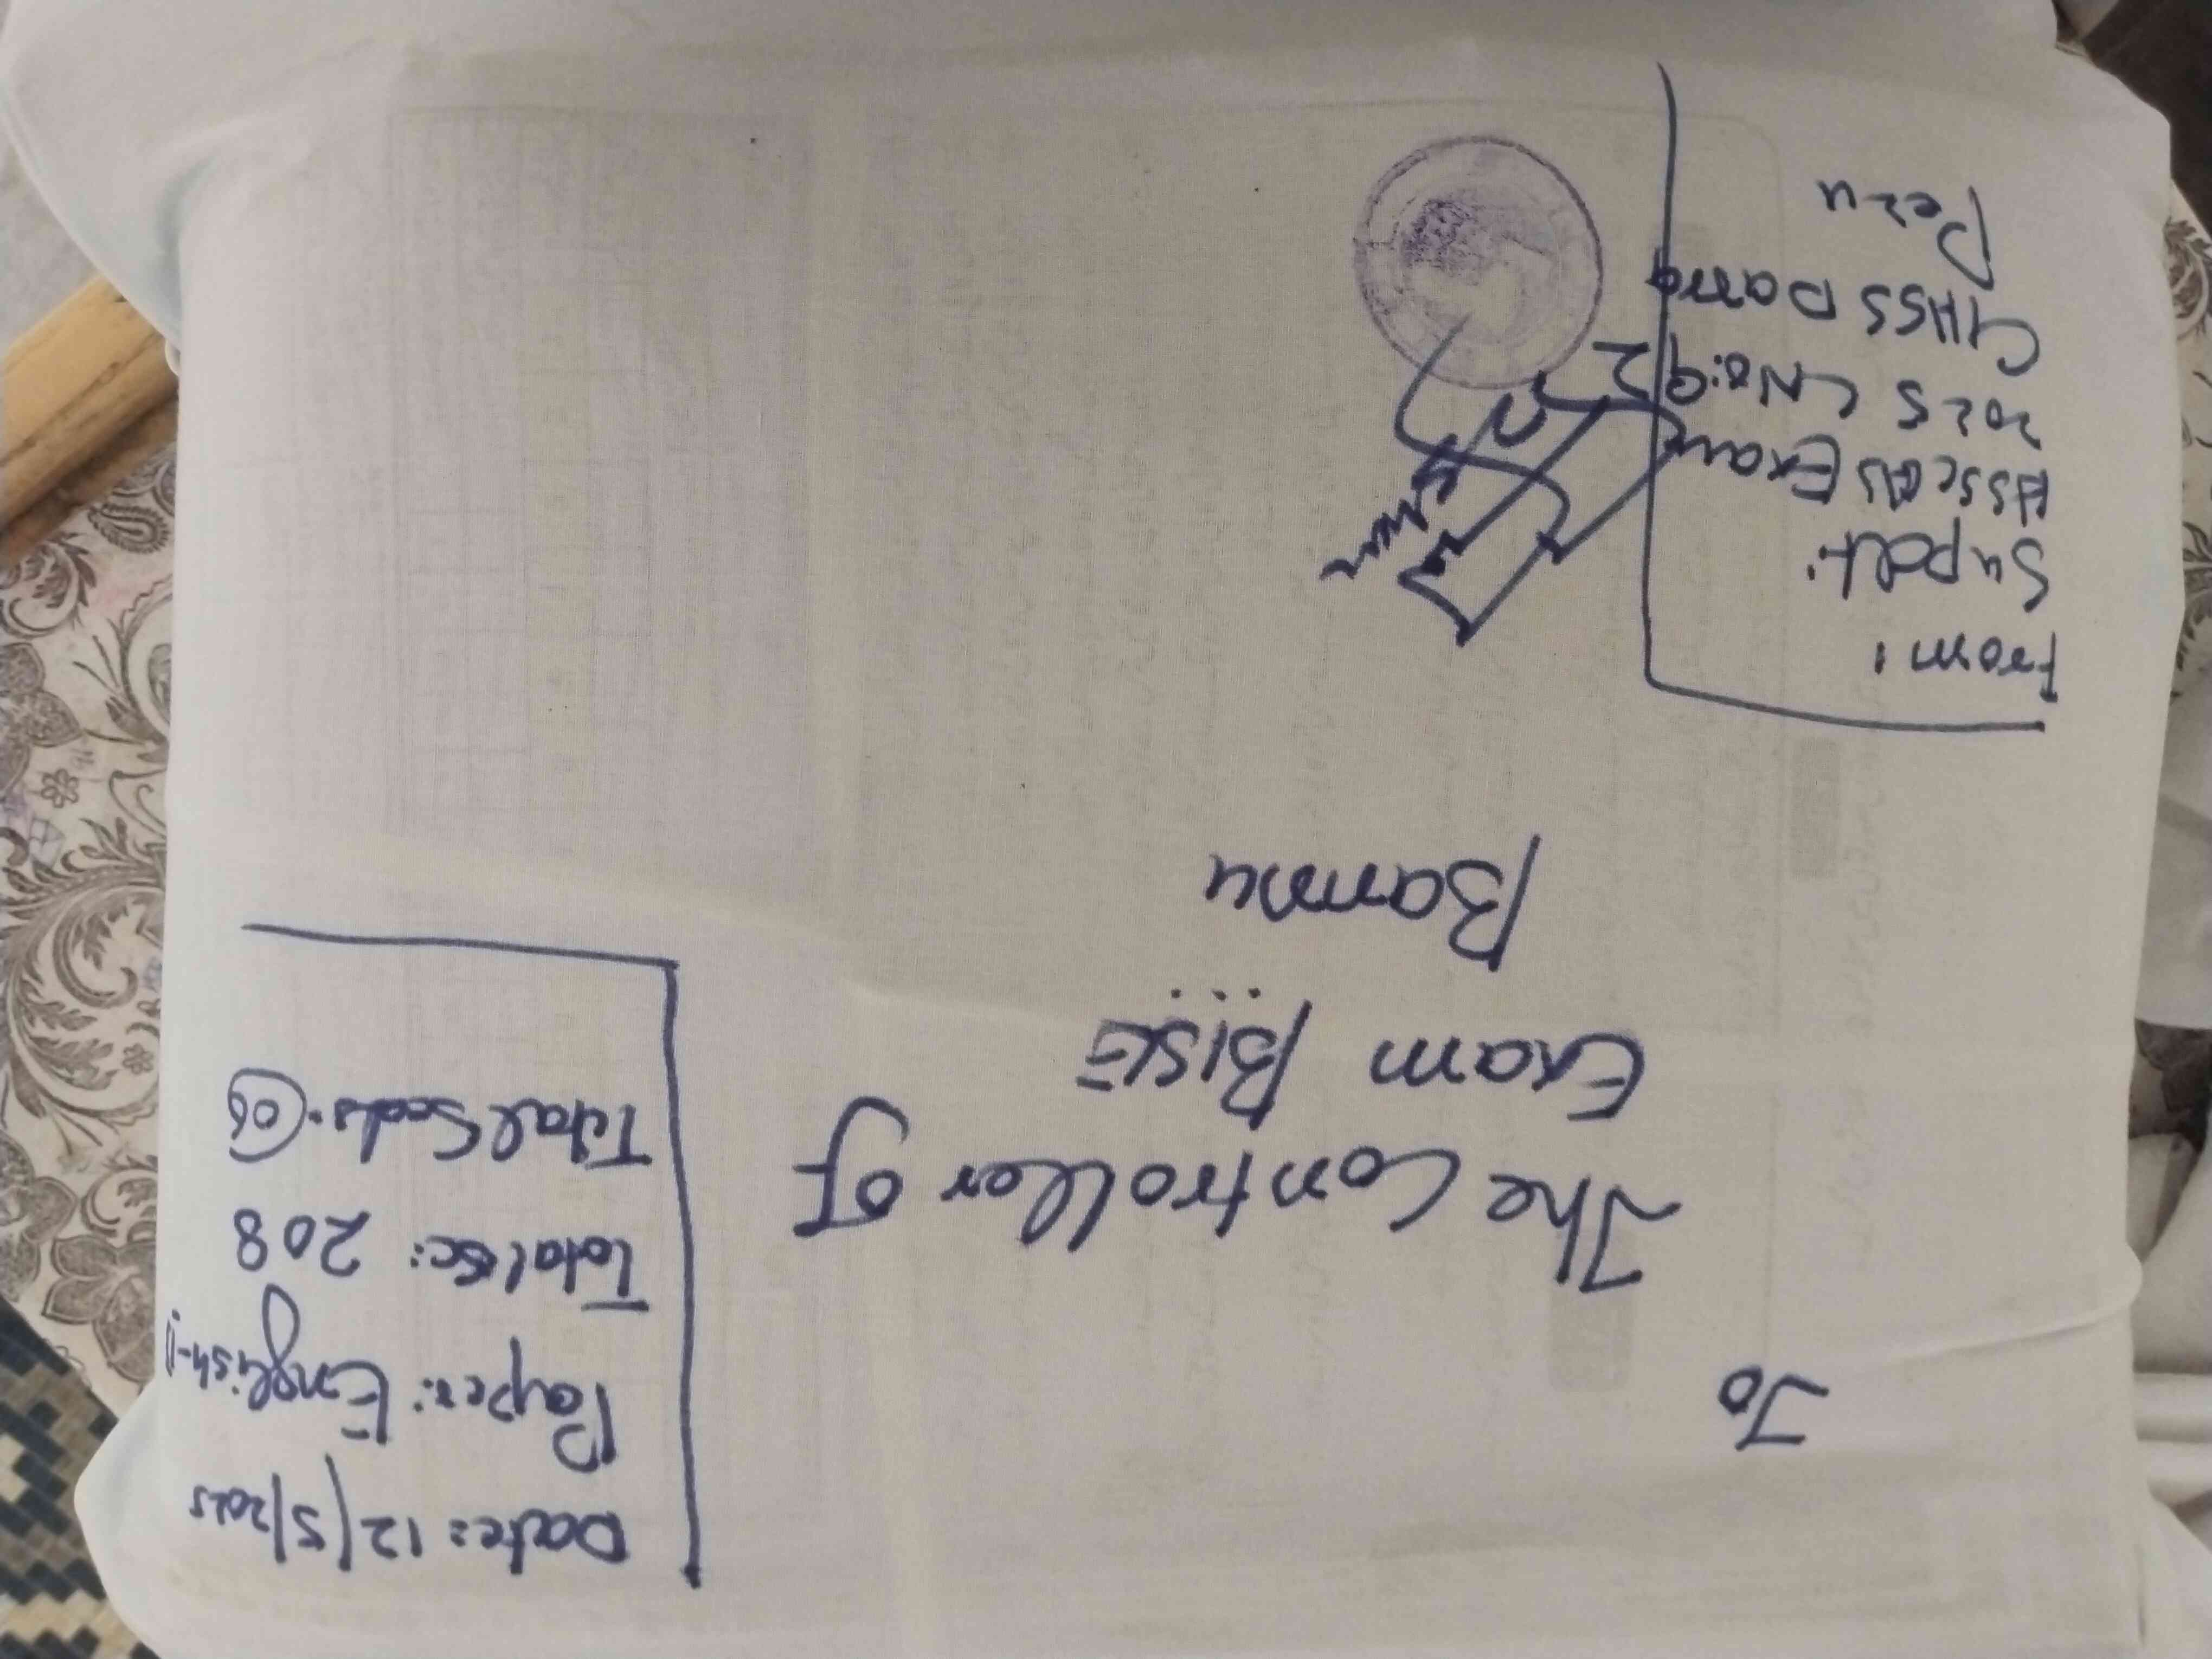 Date: 12/5/2025
Paper: English-II
Total sc: 208
Total Seals: 06
To
The Controller of
Exam BISE
Bannu
From:
Supdt:
HSSC(A) Exam
2025 CNo:92
GHSS Darra
Pezu